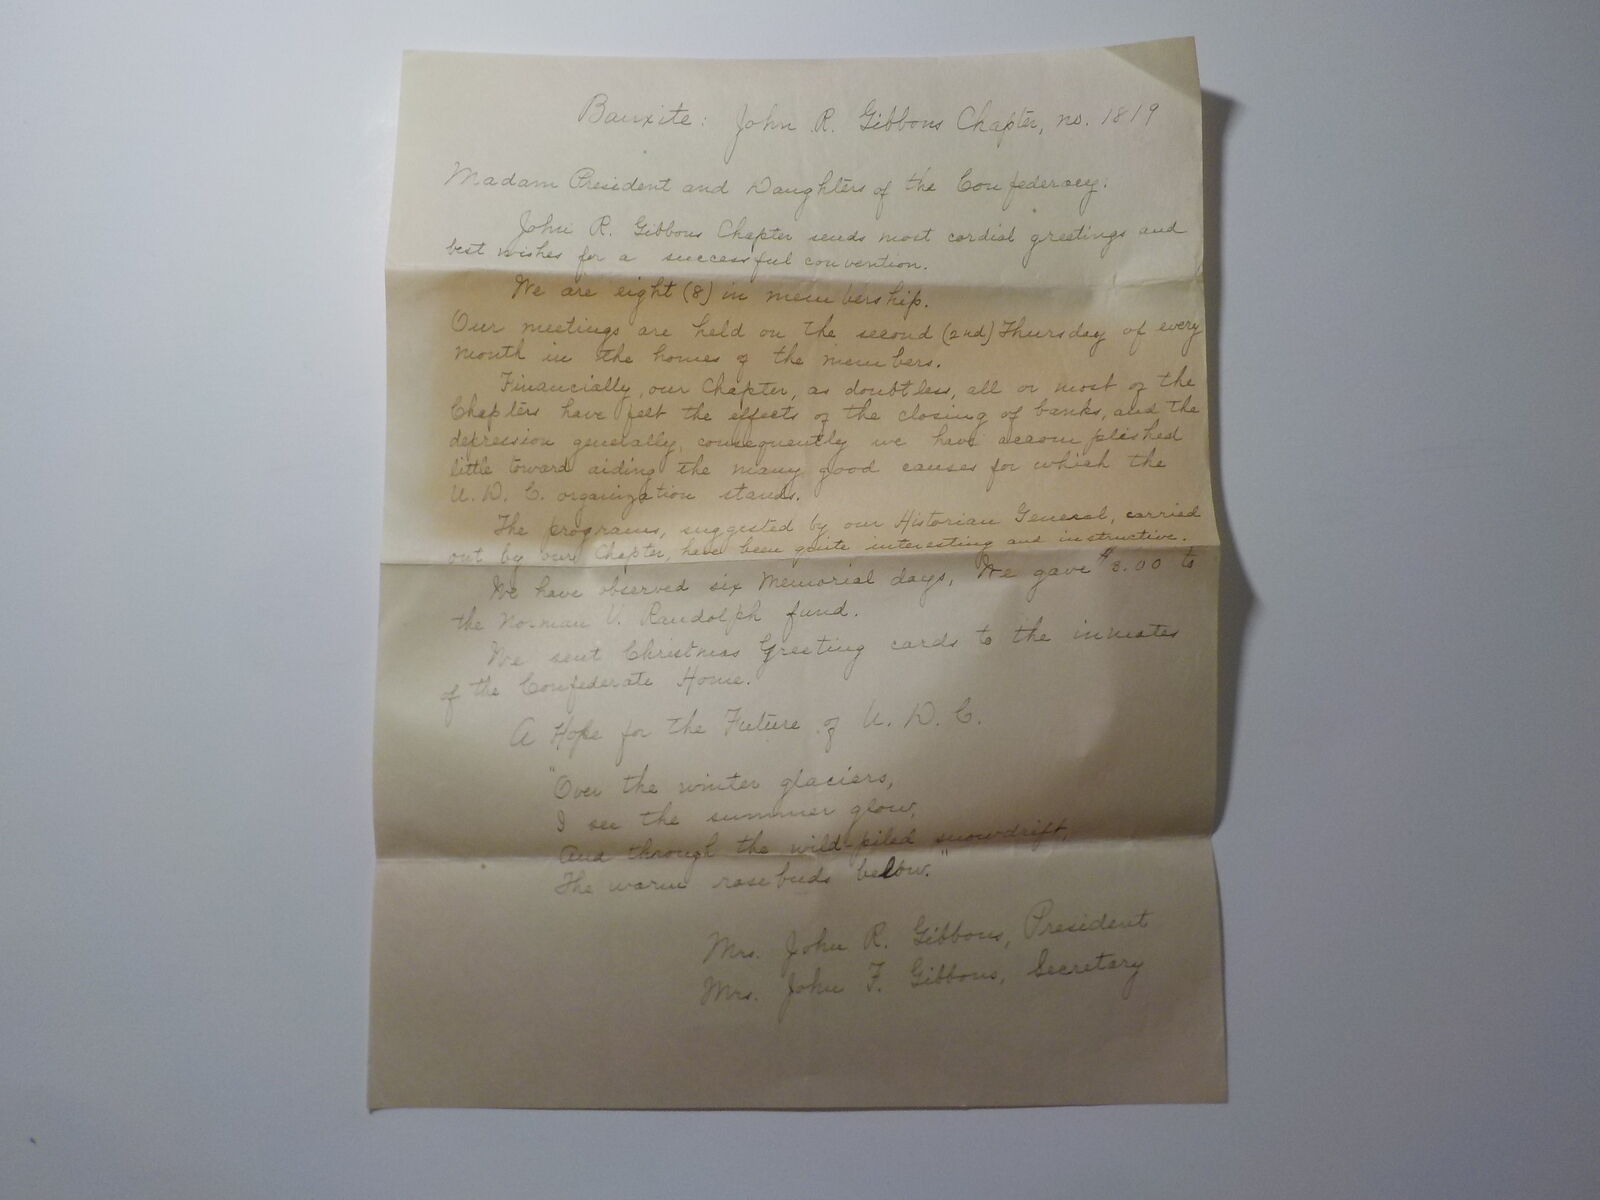 Bauxite: John R. Gibbons Chapter, no. 1819
Madam President and Daughters of the Confederacy:
John R. Gibbons Chapter sends most cordial greetings and
best wishes for a successful convention.
We are eight (8) in membership.
Our meetings are held on the second (2nd) Thursday of every
month in the homes of the members.
Financially, our Chapter, as doubtless, all or most of the
Chapters have felt the effects of the closing of banks, and the
depression generally, consequently we have accomplished
little toward aiding the many good causes for which the
U. D. C. organization stands.
The programs, suggested by our Historian General, carried
out by our Chapter, have been quite interesting and instructive.
We have observed six Memorial days, We gave $3.00 to
the Norman V. Randolph fund.
We sent Christmas Greeting cards to the inmates
of the Confederate Home.
A Hope for the Future of U. D. C.
"Over the winter glaciers,
I see the summer glow,
And through the wild-piled snowdrift,
The warm rosebuds below."
Mrs. John R. Gibbons, President
Mrs. John F. Gibbons, Secretary